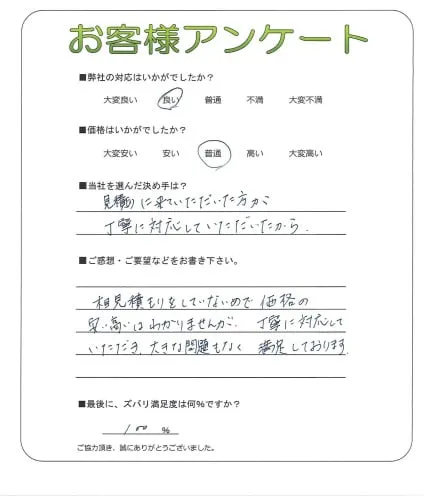 お客様アンケート
■弊社の対応はいかがでしたか？
大変良い 良い 普通 不満 大変不満
■価格はいかがでしたか？
大変安い 安い 普通 高い 大変高い
■当社を選んだ決め手は？
見積りに来ていただいた方が
丁寧に対応していただいたから.
■ご感想・ご要望などをお書き下さい。
相見積もりをしていないので 価格の
安い高いはわかりませんが、丁寧に対応して
いただき、大きな問題もなく 満足しております.
■最後に、ズバリ満足度は何％ですか？
100 %
ご協力頂き、誠にありがとうございました。